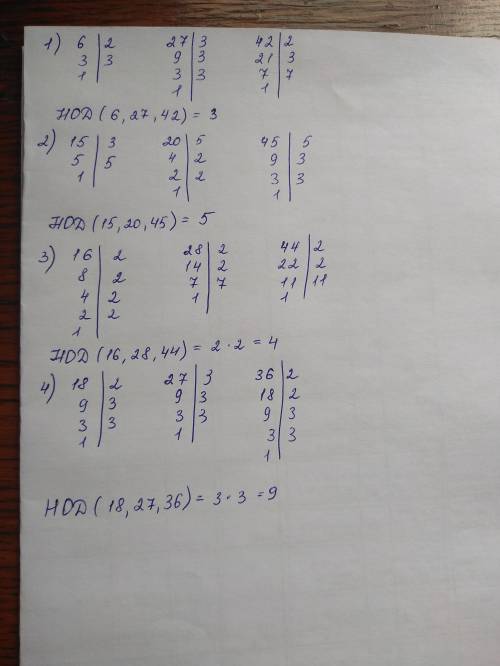 1) 6 | 2 27 | 3 42 | 2
3 | 3 9 | 3 21 | 3
1 | 3 | 3 7 | 7
1 | 1 |
НОД (6, 27, 42) = 3
2) 15 | 3 20 | 5 45 | 5
5 | 5 4 | 2 9 | 3
1 | 2 | 2 3 | 3
1 | 1 |
НОД (15, 20, 45) = 5
3) 16 | 2 28 | 2 44 | 2
8 | 2 14 | 2 22 | 2
4 | 2 7 | 7 11 | 11
2 | 2 1 | 1 |
1 |
НОД (16, 28, 44) = 2 · 2 = 4
4) 18 | 2 27 | 3 36 | 2
9 | 3 9 | 3 18 | 2
3 | 3 3 | 3 9 | 3
1 | 1 | 3 | 3
1 |
НОД (18, 27, 36) = 3 · 3 = 9